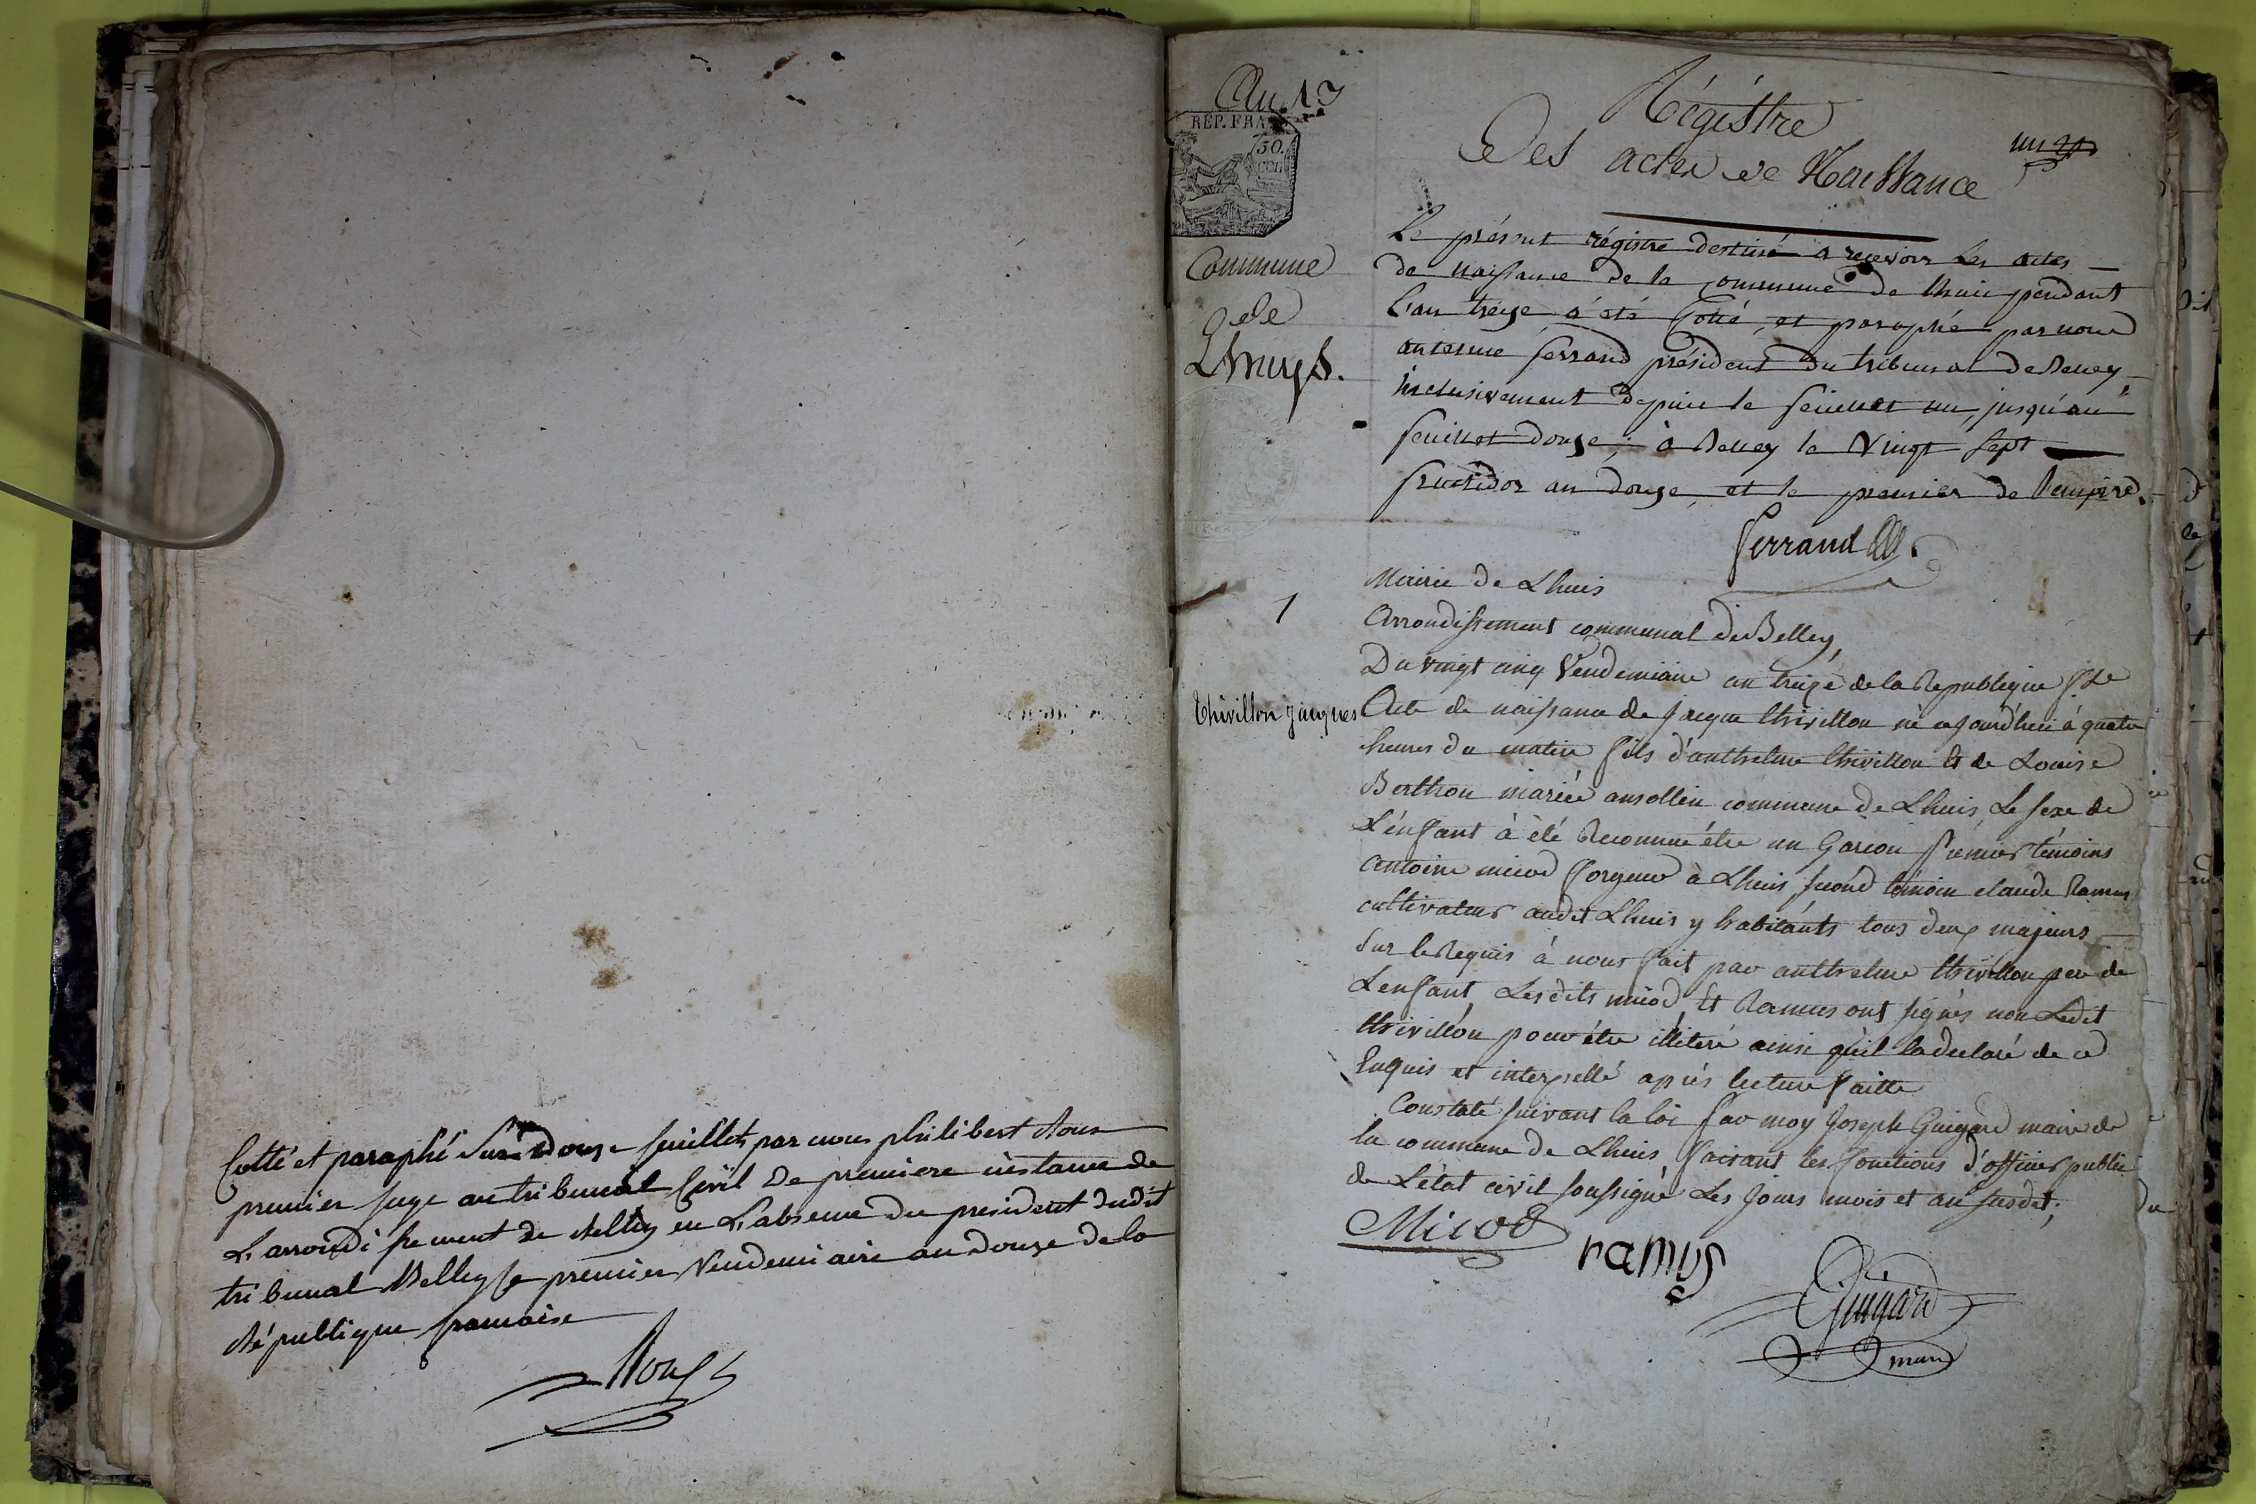 Cotté et paraphé Sur douze feuillets par nous philibert Roux
premier juge au tribunal Civil De premiere instance de
L'arrondissement de Belley en L'absence du president dudit
tribunal Belley le premier Vendemiaire an douze de la
République francaise
Roux
An 13
REP. FRA
50.
CEN
Commune
de
Lhuys.
Régistre
Des actes de Naissance
un
Le présent régistre destiné a recevoir les actes
de naissance de la commune de lhuis pendant
l'an treize a été Cotté et paraphé par nous
antelme ferrand président du tribunal de Belley,
inclusivement depuis le feuillet un, jusqu'au
feuillet douze; à Belley le Vingt Sept
fructidor an douze, et le premier de l'empire.
ferrand
1
Mairie de Lhuis
Arrondissement communal de Belley,
Du vingt cinq Vendemiaire an treize de la Republique fse
thivillon jacques
Acte de naissance de jacque thivillon né cejourd'hui à quatre
heures du matin fils d'anthelme thivillon et de Louise
Berthon mariée ansollin commune de Lhuis, Le sexe de
L'enfant à été Reconnu être un Garcon premier témoins
antoine micod forgeur à Lhuis, second témoin claude Ramus
cultivateur audit Lhuis y habitants tous deux majeurs
Sur le Requis à nous fait par anthelme thivillon pere de
L'enfant, Lesdits micod Et Ramus ont signés non Ledit
thivillon pour être illiteré ainsi qu'il la declaré de ce
Enquis et interpellé après lecture faitte
Constaté suivant la loi par moy Joseph Guigard maire de
la commune de Lhuis faisant les fonctions d'officier public
de L'état civil soussigné Les Jours mois et an susdit;
Micod
ramus
Guigard
maire